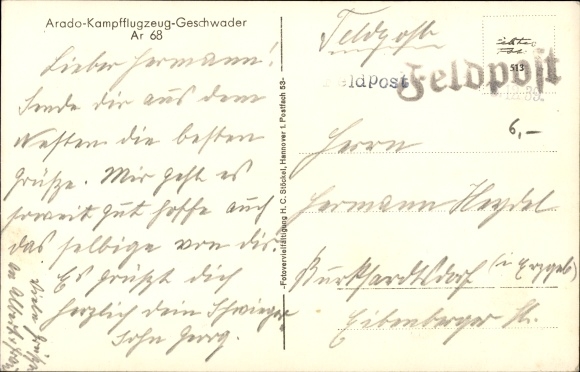 Arado-Kampfflugzeug-Geschwader
Ar 68
Lieber Hermann!
Sende dir aus dem
Westen die besten
Grüße. Mir geht es
soweit gut hoffe auch
das selbige von dir.
Es grüßt dich
herzlich dein Schwieger
Sohn Georg.
Viele Grüße
an alle
-Fotovervielfältigung H. C. Stöckel, Hannover 1, Postfach 53-
Feldpost
Feldpost
Feldpost
513
6,-
Herrn
Hermann Heydel
Burkhardtsdorf (i Erzgeb)
Eibenberger St.